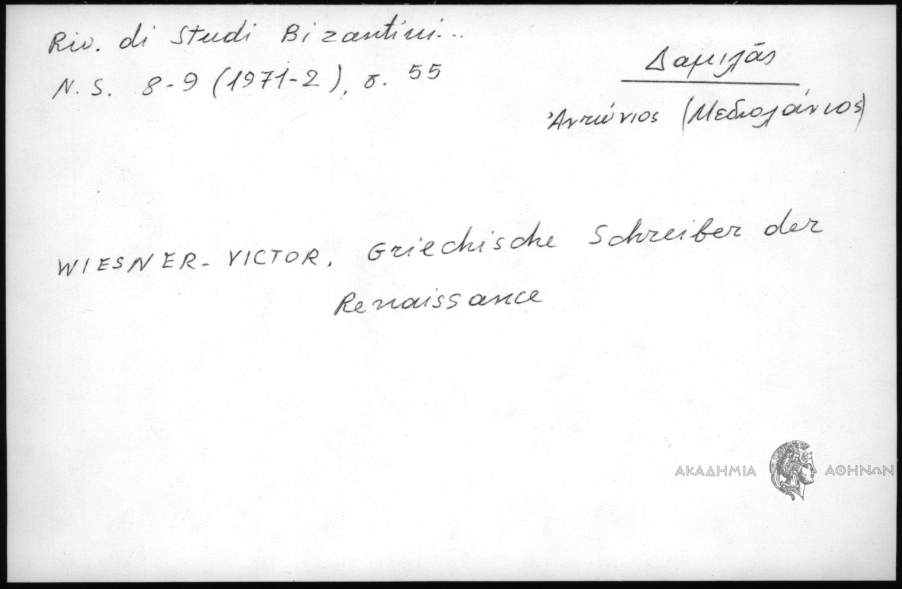 Riv. di Studi Bizantini...
N.S. 8-9 (1971-2), σ. 55
Δαμιλᾶς
Ἀντώνιος (Μεδιολάνιος)
WIESNER-VICTOR. Griechische Schreiber der
Renaissance
ΑΚΑΔΗΜΙΑ ΑΘΗΝΩΝ